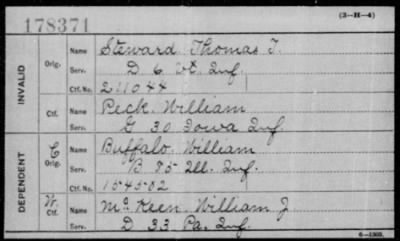 178371
(3—H—4)
INVALID
Orig.
Name Steward Thomas J.
Serv. D 6 Vt. Inf.
Ctf. No. 211044
Ctf.
Name Peck, William
Serv. G 30 Iowa Inf.
DEPENDENT
C Orig.
Name Buffalo, William
Serv. B 85 Ill. Inf.
Ctf. No. 154502
W. Ctf.
Name McKeen, William J
Serv. D 33 Pa. Inf.
6—1905.